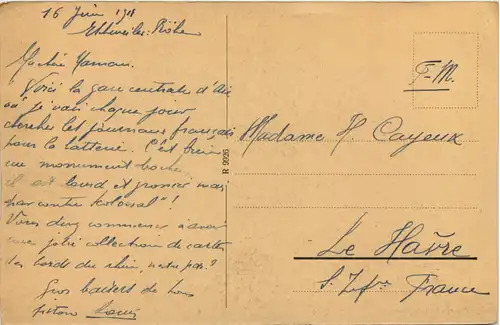 16 Juin 191
Eschweiler-Röhe
Ma chère Maman.
Voici la gare centrale d'Aix
où je vais chaque jour
chercher les journaux français
pour la batterie. C'est bien
un monument boche,
il est lourd et grossier mais
par contre Kolossal"!
Vous devez commencer à avoir
une jolie collection de cartes
des bords du rhin, n'est-ce pas?
Gros baisers de ton
fiston Louis
R 9926
F.-M.
Madame H. Cayeux
Le Havre
S. Infre France